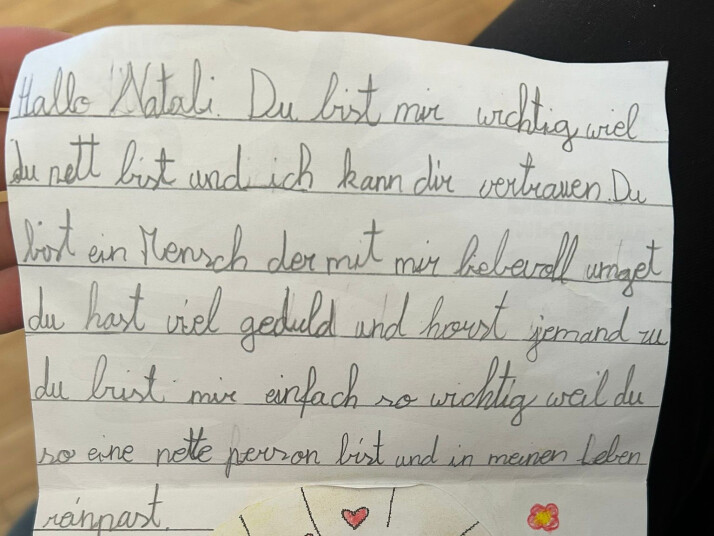 Hallo Natali. Du bist mir wichtig wiel
du nett bist und ich kann dir vertrauen. Du
bist ein Mensch der mit mir liebevoll umget
du hast viel geduld und horst jemand zu
du bist mir einfach so wichtig weil du
so eine nette person bist und in meinen Leben
reinpast.